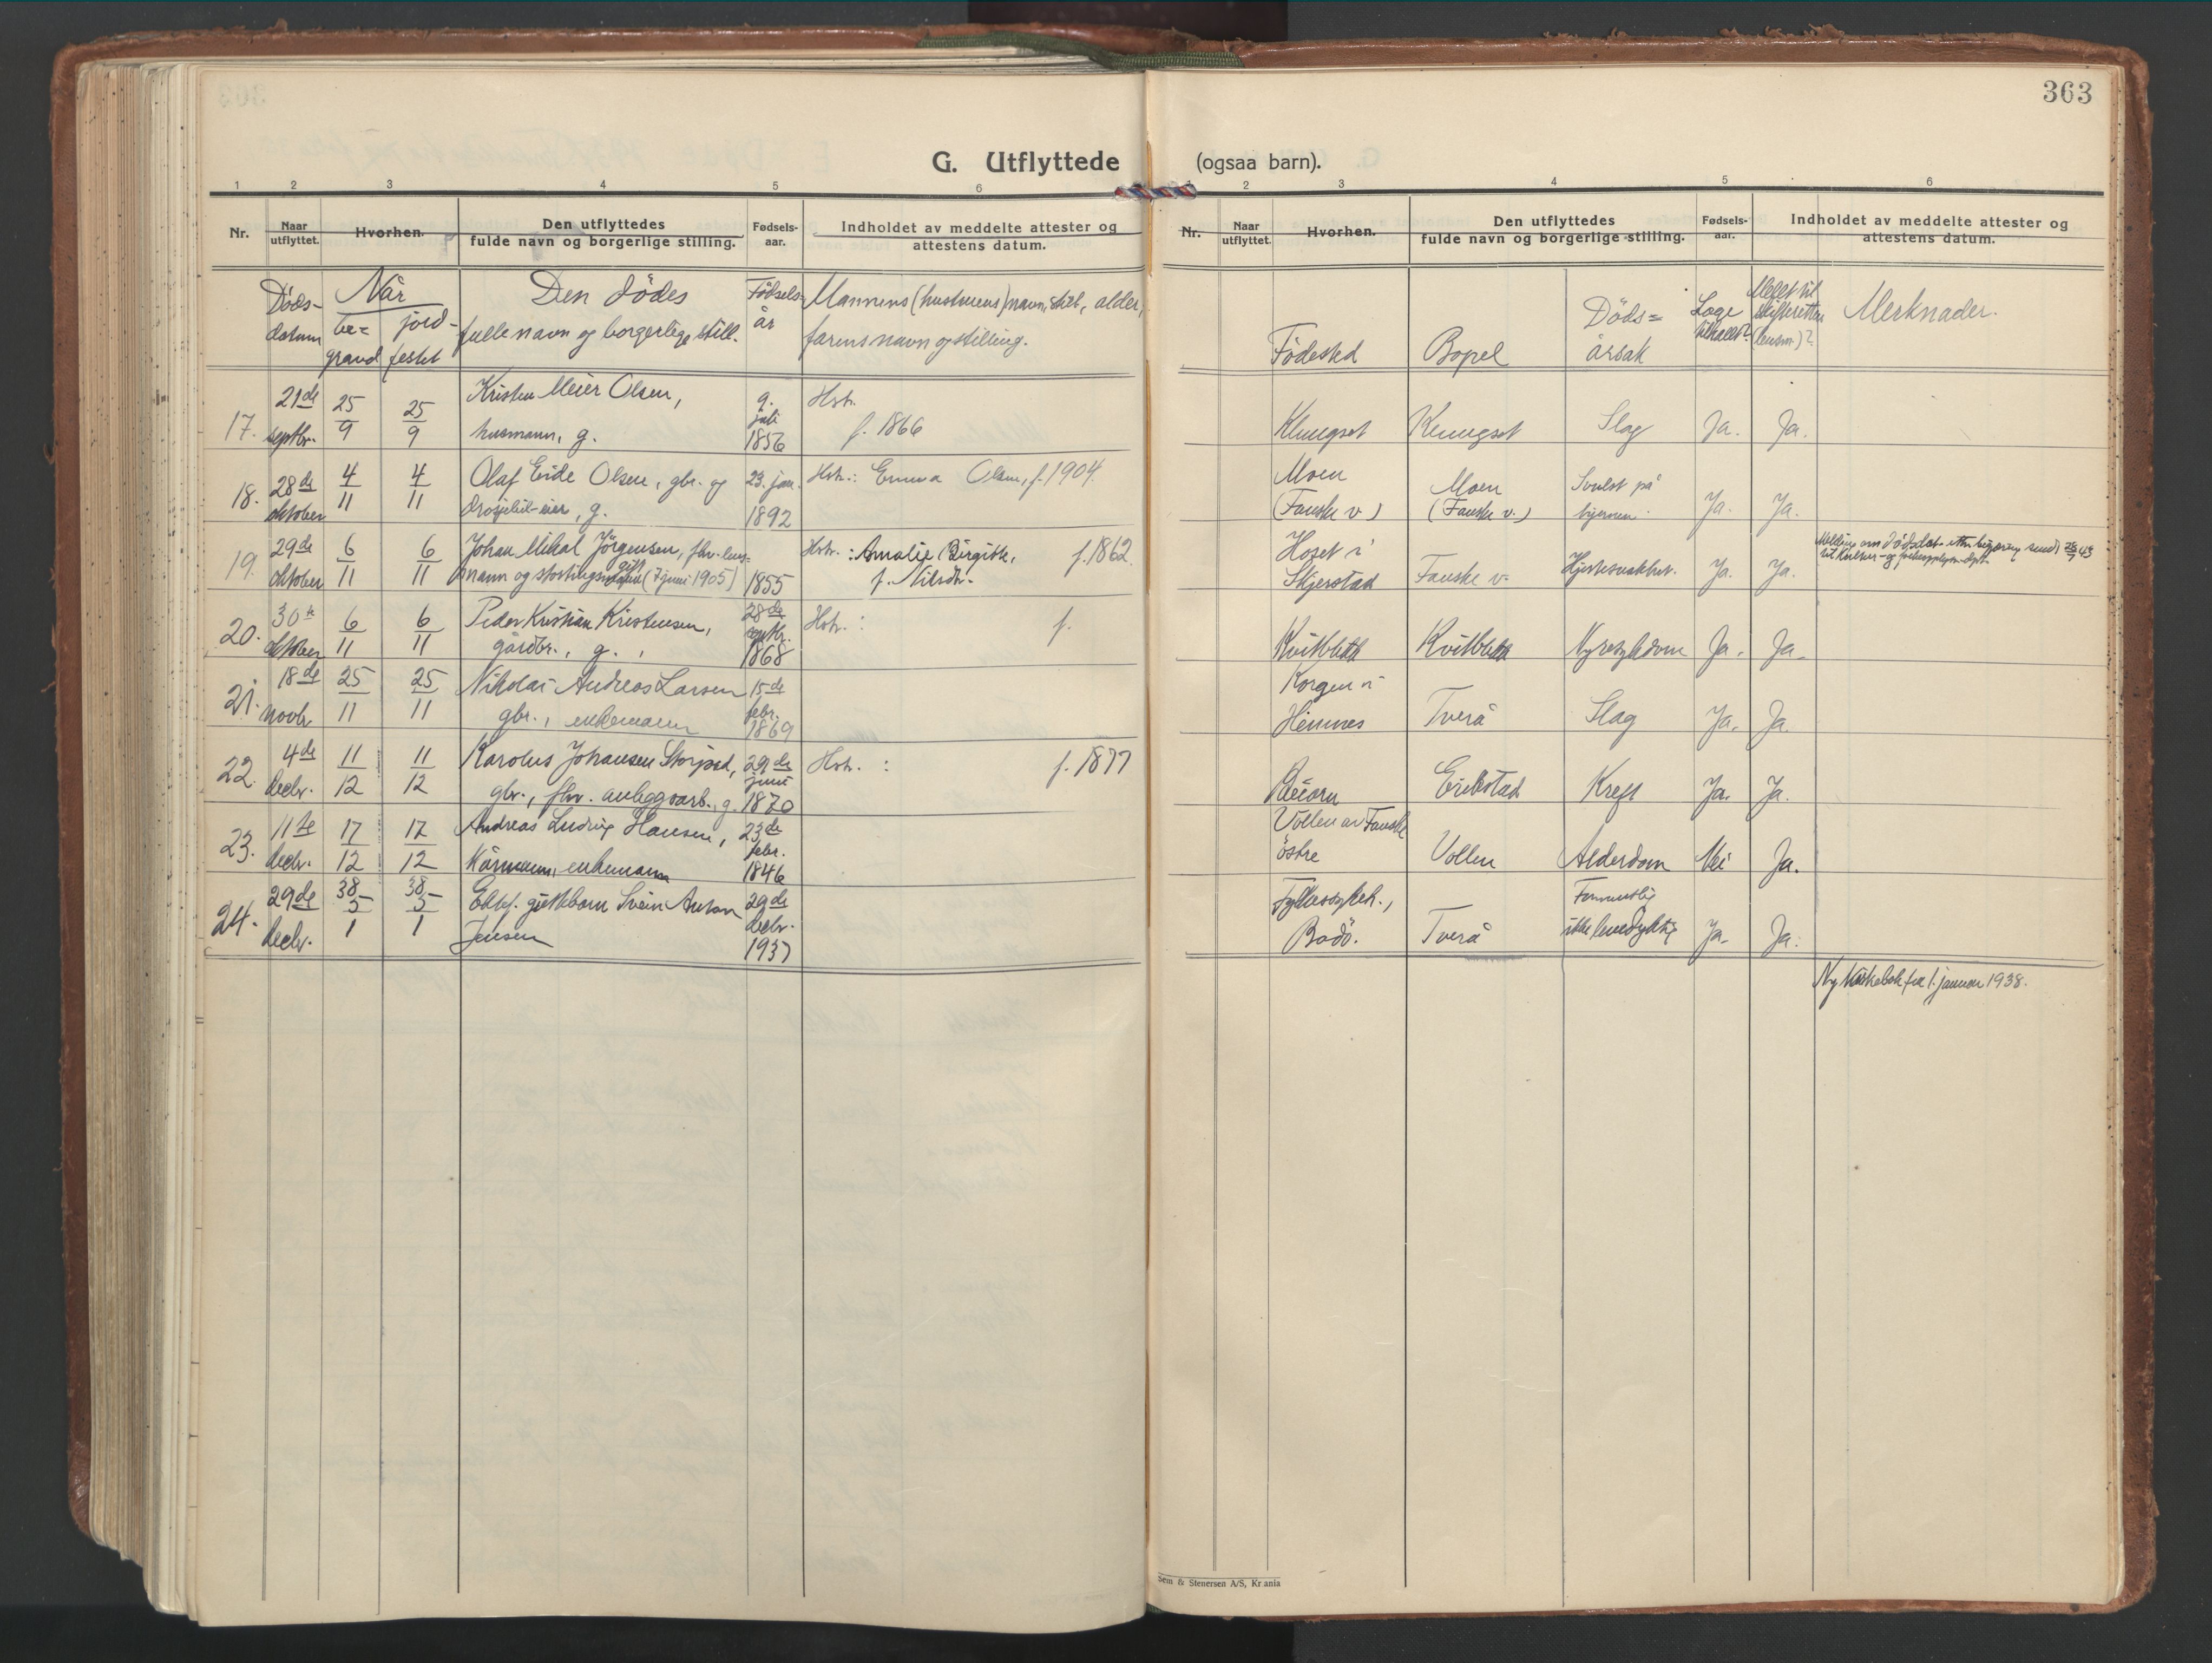 363
G. Utflyttede (ogsaa barn).
1 2 3 4 5 6
Nr. Naar utflyttet. Hvorhen. Den utflyttedes fulde navn og borgerlige stilling. Fødsels-aar. Indholdet av meddelte attester og attestens datum.
1 2 3 4 5 6
Nr. Naar utflyttet. Hvorhen. Den utflyttedes fulde navn og borgerlige stilling. Fødsels-aar. Indholdet av meddelte attester og attestens datum.
Døds- Når Den dödes Födsels- Mannens (hustruens) navn, still, alder,
datum be= jord- fulle navn og borgerlige still. år farens navn og stilling.
gravd festet
Födested Bopel Döds= årsak Læge tilkallt? Meldt til skifteretten (lensm.)? Merknader.
17. 21de septbr. 25/9 25/9 Kristen Meier Olsen, 9. juli 1856 Hstr.
husmann, g. f. 1866
Klungset Klungset Slag Ja. Ja.
18. 28de oktober 4/11 4/11 Olaf Eide Olsen, gbr. og 23. jan. 1892 Hstr.: Emma Olsen, f. 1904.
drosjebil-eier, g.
Moen (Fauske v.) Moen (Fauske v.) Svulst på hjernen. Ja. Ja.
19. 29de oktober 6/11 6/11 Johan Mikal Jörgensen, fhv. lens- 1855 Hstr.: Amalie Birgitte, f. 1862.
mann og stortingsmann (7 juni 1905) gift f. Nilsdtr.
Hoset i Skjerstad Fauske v. Hjertesvakhet. Ja. Ja. Melding om dödsdat. etter begjæring sendt
til Kultur- og
20. 30te oktober 6/11 6/11 Peder Kristian Kristensen, 28de septbr. 1868 Hstr.: f.
gårdbr., g.,
Kvitblikk Kvitblikk Nyresykdom Ja. Ja.
21. 18de novbr 25/11 25/11 Nikolai Andreas Larsen 15de febr. 1869
gbr., enkemann
Korgen i Hemnes Tverå Slag Ja. Ja.
22. 4de decbr. 11/12 11/12 Karolus Johansen Storjord, 29de juni 1870 Hstr.: f. 1877
gbr., fhv. anleggsarb., g.
Erikstad Kreft Ja. Ja.
23. 11te decbr. 17/12 17/12 Andreas Ludvig Hansen, 23de febr. 1846
kårmann, enkemann
Vollen av Fauske östre Vollen Alderdom Nei Ja.
24. 29de decbr. 38 5/1 38 5/1 Ektef. guttebarn Svein Anton 29de decbr. 1937
Jensen
Fylkessykeh., Bodö. Tverå Formentlig ikke levedyktig Ja. Ja.
Ny kirkebok fra 1. januar 1938.
Sem & Stenersen A/S, Kr.ania